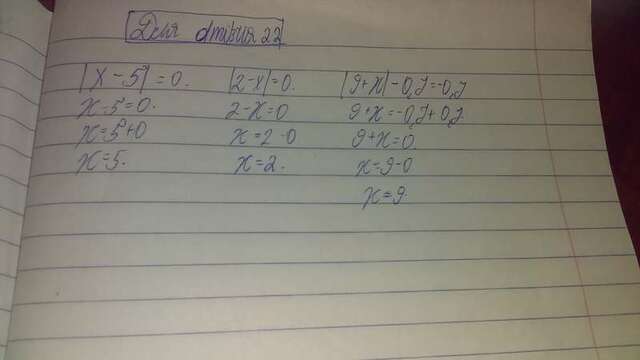 Для dmipuя22
|x-5|=0.
x-5=0.
x=5+0
x=5.
|2-x|=0.
2-x=0
x=2-0
x=2.
|9+x|-0,7=-0,7
9+x=-0,7+0,7.
9+x=0
x=9-0
x=9